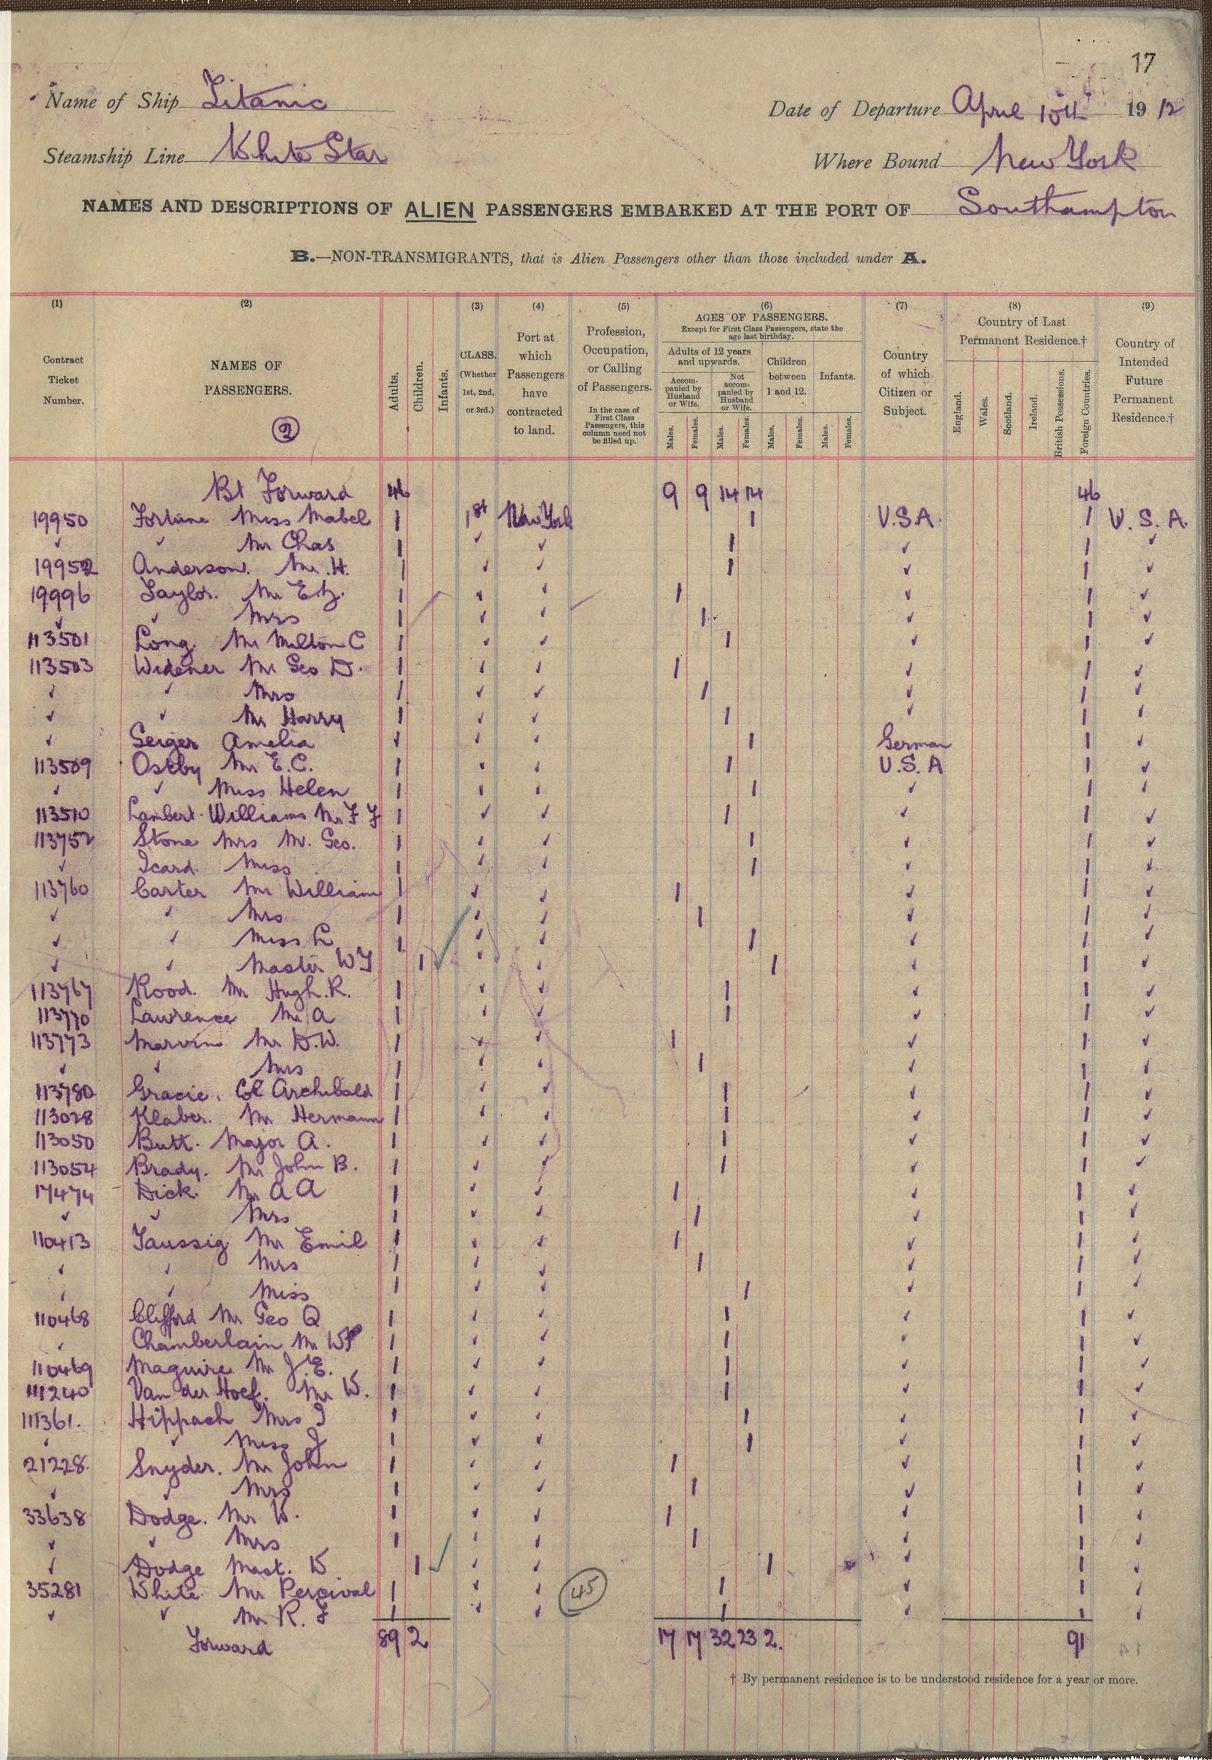 17
Name of Ship Titanic
Date of Departure April 10th 1912
Steamship Line White Star
Where Bound New York
NAMES AND DESCRIPTIONS OF ALIEN PASSENGERS EMBARKED AT THE PORT OF Southampton
B.—NON-TRANSMIGRANTS, that is Alien Passengers other than those included under A.
(1) (2) (3) (4) (5) (6) (7) (8) (9)
Contract Ticket Number.
NAMES OF PASSENGERS.
2
Adults.
Children.
Infants.
CLASS. (Whether 1st, 2nd, or 3rd.)
Port at which Passengers have contracted to land.
Profession, Occupation, or Calling of Passengers.
In the case of First Class Passengers, this column need not be filled up.
AGES OF PASSENGERS.
Except for First Class Passengers, state the age last birthday.
Adults of 12 years and upwards.
Accompanied by Husband or Wife.
Not accompanied by Husband or Wife.
Children between 1 and 12.
Infants.
Males. Females. Males. Females. Males. Females. Males. Females.
Country of which Citizen or Subject.
Country of Last Permanent Residence.†
England. Wales. Scotland. Ireland. British Possessions. Foreign Countries.
Country of Intended Future Permanent Residence.†
Bt Forward 46 9 9 14 14 46
19950 Fortune Miss Mabel 1 1st New York 1 U.S.A. 1 U.S.A.
✓ ✓ Mr Chas 1 ✓ ✓ 1 ✓ 1 ✓
19952 Anderson. Mr. H. 1 ✓ ✓ 1 ✓ 1 ✓
19996 Taylor. Mr E.Z. 1 ✓ ✓ 1 ✓ 1 ✓
✓ ✓ Mrs 1 ✓ ✓ 1 ✓ 1 ✓
113501 Long. Mr Milton C 1 ✓ ✓ 1 ✓ 1 ✓
113503 Widener Mr Geo D. 1 ✓ ✓ 1 ✓ 1 ✓
✓ ✓ Mrs 1 ✓ ✓ 1 ✓ 1 ✓
✓ ✓ Mr Harry 1 ✓ ✓ 1 ✓ 1 ✓
✓ Geiger Amelia 1 ✓ ✓ 1 German 1 ✓
113509 Ostby Mr E.C. 1 ✓ ✓ 1 U.S.A 1 ✓
✓ ✓ Miss Helen 1 ✓ ✓ 1 ✓ 1 ✓
113510 Lambert-Williams Mr F F 1 ✓ ✓ 1 ✓ 1 ✓
113752 Stone Mrs M. Geo. 1 ✓ ✓ 1 ✓ 1 ✓
✓ Icard. Miss 1 ✓ ✓ 1 ✓ 1 ✓
113760 Carter Mr William 1 ✓ ✓ 1 ✓ 1 ✓
✓ ✓ Mrs 1 ✓ ✓ 1 ✓ 1 ✓
✓ ✓ Miss L 1 ✓ ✓ 1 ✓ 1 ✓
✓ ✓ Master W T 1 ✓ ✓ ✓ 1 ✓ 1 ✓
113767 Rood. Mr Hugh. R. 1 ✓ ✓ 1 ✓ 1 ✓
113770 Lawrence Mr A 1 ✓ ✓ 1 ✓ 1 ✓
113773 Marvin Mr D.W. 1 ✓ ✓ 1 ✓ 1 ✓
✓ ✓ Mrs 1 ✓ ✓ 1 ✓ 1 ✓
113780 Gracie. Col Archibald 1 ✓ ✓ 1 ✓ 1 ✓
113028 Klaber. Mr Hermann 1 ✓ ✓ 1 ✓ 1 ✓
113050 Butt. Major A. 1 ✓ ✓ 1 ✓ 1 ✓
113054 Brady. Mr John B. 1 ✓ ✓ 1 ✓ 1 ✓
17474 Dick. Mr A A 1 ✓ ✓ 1 ✓ 1 ✓
✓ ✓ Mrs 1 ✓ ✓ 1 ✓ 1 ✓
110413 Taussig Mr Emil 1 ✓ ✓ 1 ✓ 1 ✓
✓ ✓ Mrs 1 ✓ ✓ 1 ✓ 1 ✓
✓ ✓ Miss 1 ✓ ✓ 1 ✓ 1 ✓
110468 Clifford Mr Geo Q 1 ✓ ✓ 1 ✓ 1 ✓
✓ Chamberlain Mr 1 ✓ ✓ 1 ✓ 1 ✓
110469 Maguire Mr J.E. 1 ✓ ✓ 1 ✓ 1 ✓
111240 Van der Hoef. Mr W. 1 ✓ ✓ 1 ✓ 1 ✓
111361. Hippach Mrs I 1 ✓ ✓ 1 ✓ 1 ✓
✓ ✓ Miss J 1 ✓ ✓ 1 ✓ 1 ✓
21228 Snyder. Mr John 1 ✓ ✓ 1 ✓ 1 ✓
✓ Mrs 1 ✓ ✓ 1 ✓ 1 ✓
33638 Dodge. Mr W. 1 ✓ ✓ 1 ✓ 1 ✓
✓ ✓ Mrs 1 ✓ ✓ 1 ✓ 1 ✓
✓ Dodge Mast. W 1 ✓ ✓ ✓ 1 ✓ 1 ✓
35281 White Mr Percival 1 ✓ ✓ 45 1 ✓ 1 ✓
✓ ✓ Mr R. F 1 ✓ ✓ 1 ✓ 1 ✓
Forward 89 2 17 17 32 23 2. 91
† By permanent residence is to be understood residence for a year or more.